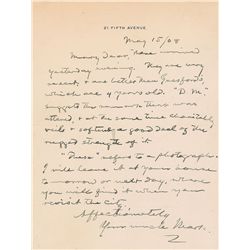 21 FIFTH AVENUE
May 15/08
dear, have arrived
yesterday evening. They are very
recent, & are better than Guesford's,
which are 4 years old. "D. M."
suggests the mammoth that was
& at the same time charitably
veils & softens a good deal of the
rugged strength of it
"These" refers to a photograph.
I will leave it at your house
to-morrow or next day, where
you will find it when you
revisit the city.
Affectionately
Your uncle Mark.